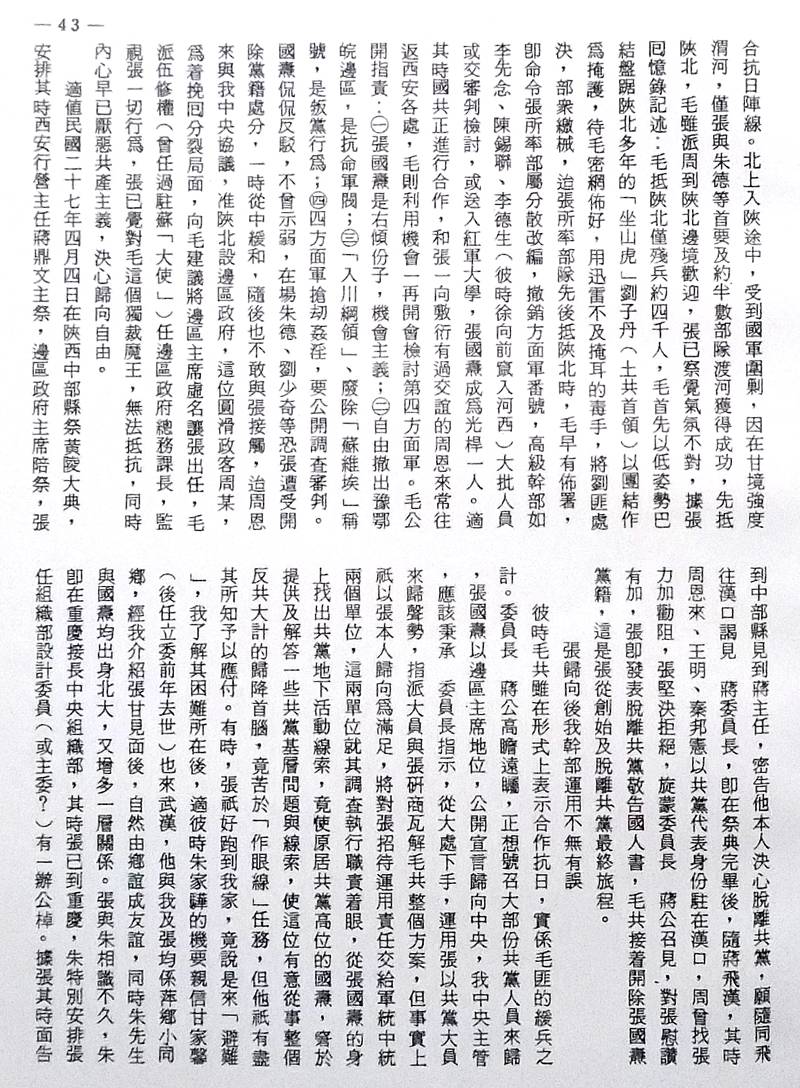 — 43 —
合抗日陣線。北上入陝途中，受到國軍圍剿，因在甘境強度
渭河，僅張與朱德等首要及約半數部隊渡河獲得成功，先抵
陝北，毛雖派周到陝北邊境歡迎，張已察覺氣氛不對，據張
回憶錄記述：毛抵陝北僅殘兵約四千人，毛首先以低姿勢巴
結盤踞陝北多年的「坐山虎」劉子丹（土共首領）以團結作
為掩護，待毛密網佈好，用迅雷不及掩耳的毒手，將劉匪處
決，部衆繳械，迨張所率部隊先後抵陝北時，毛早有佈署，
卽命令張所率部屬分散改編，撤銷方面軍番號，高級幹部如
李先念、陳錫聯、李德生（彼時徐向前竄入河西）大批人員
或交審判檢討，或送入紅軍大學，張國燾成爲光桿一人。適
其時國共正進行合作，和張一向敷衍有過交誼的周恩來常往
返西安各處，毛則利用機會一再開會檢討第四方面軍。毛公
開指責：㊀張國燾是右傾份子，機會主義；㊁自由撤出豫鄂
皖邊區，是抗命軍閥；㊂「入川綱領」、廢除「蘇維埃」稱
號，是叛黨行爲；㊃四方面軍搶刧姦淫，要公開調查審判。
國燾侃侃反駁，不曾示弱，在場朱德、劉少奇等恐張遭受開
除黨籍處分，一時從中緩和，隨後也不敢與張接觸，迨周恩
來與我中央協議，准陝北設邊區政府，這位圓滑政客周某，
爲着挽回分裂局面，向毛建議將邊區主席虛名讓張出任，毛
派伍修權（曾任過駐蘇「大使」）任邊區政府總務課長，監
視張一切行爲，張已覺對毛這個獨裁魔王，無法抵抗，同時
內心早已厭惡共產主義，決心歸向自由。
適値民國二十七年四月四日在陝西中部縣祭黃陵大典，
安排其時西安行營主任蔣鼎文主祭，邊區政府主席陪祭，張
到中部縣見到蔣主任，密告他本人決心脫離共黨，願隨同飛
往漢口謁見　蔣委員長，卽在祭典完畢後，隨蔣飛漢，其時
周恩來、王明、秦邦憲以共黨代表身份駐在漢口，周曾找張
力加勸阻，張堅決拒絕，旋蒙委員長　蔣公召見，對張慰讚
有加，張卽發表脫離共黨敬告國人書，毛共接着開除張國燾
黨籍，這是張從創始及脫離共黨最終旅程。
張歸向後我幹部運用不無有誤
彼時毛共雖在形式上表示合作抗日，實係毛匪的緩兵之
計。委員長　蔣公高瞻遠矚，正想號召大部份共黨人員來歸
，張國燾以邊區主席地位，公開宣言歸向中央，我中央主管
，應該秉承　委員長指示，從大處下手，運用張以共黨大員
來歸聲勢，指派大員與張硏商瓦解毛共整個方案，但事實上
祇以張本人歸向爲滿足，將對張招待運用責任交給軍統中統
兩個單位，這兩單位就其調查執行職責着眼，從張國燾的身
上找出共黨地下活動線索，竟使原居共黨高位的國燾，窘於
提供及解答一些共黨基層問題與線索，使這位有意從事整個
反共大計的歸降首腦，竟苦於「作眼線」任務，但他祇有盡
其所知予以應付。有時，張祇好跑到我家，竟說是來「避難
」，我了解其困難所在後，適彼時朱家驊的機要親信甘家馨
（後任立委前年去世）也來武漢，他與我及張均係萍鄉小同
鄉，經我介紹張甘見面後，自然由鄉誼成友誼，同時朱先生
與國燾均出身北大，又增多一層關係。張與朱相識不久，朱
卽在重慶接長中央組織部，其時張已到重慶，朱特別安排張
任組織部設計委員（或主委？）有一辦公棹。據張其時面告